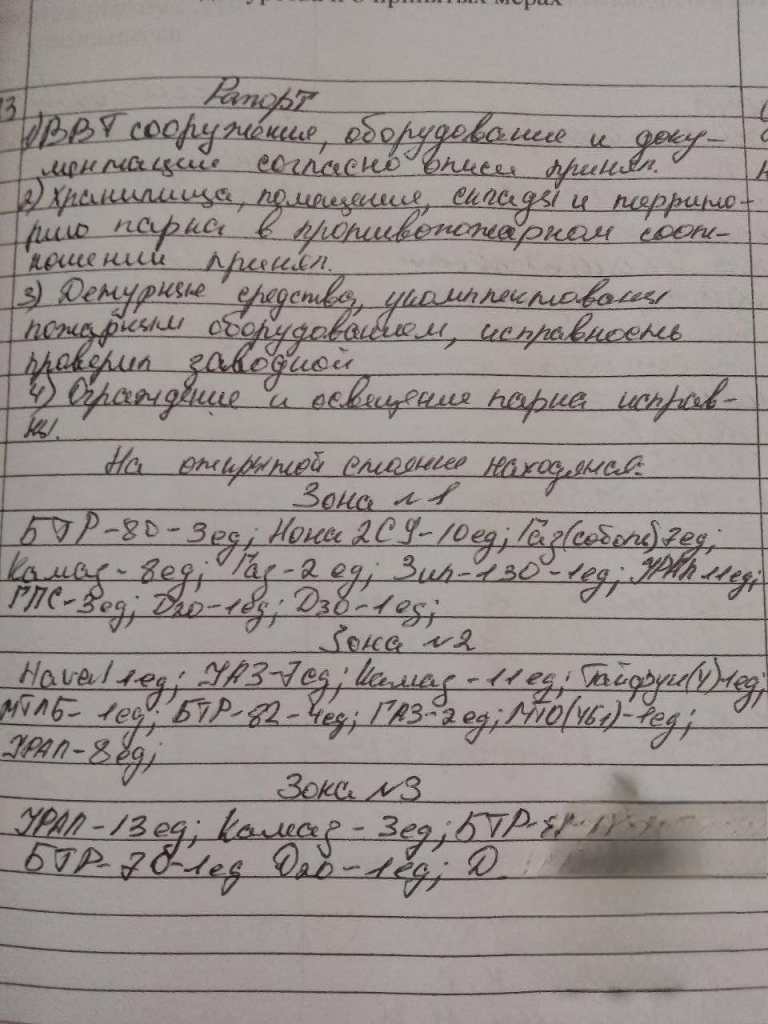 и о принятых мерах
13
Рапорт
1) ВВТ сооружения, оборудование и доку-
ментацию согласно описи принял.
2) Хранилища, помещения, склады и террито-
рию парка в противопожарном соот-
ношении принял.
3) Дежурные средства, укомплектованы
пожарным оборудованием, исправность
проверил заводкой
4) Ограждение и освещение парка исправ-
ны.
На открытой стоянке находятся:
Зона №1
БТР-80-3ед; Нона 2С9-10ед; Газ(соболь)7ед;
Камаз-8ед; Газ-2 ед; Зил-130-1ед; УРАЛ 11ед;
ГПС-3ед; Д20-1ед; Д30-1ед;
Зона №2
Haval 1ед; УАЗ-7ед; Камаз-11ед; Тайфун(У)1ед;
МТЛБ-1ед; БТР-82-4ед; ГАЗ-2ед; МТО(УБ1)-1ед;
УРАЛ-8ед;
Зона №3
УРАЛ-13ед; Камаз-3ед; БТР-
БТР-70-1ед Д20-1ед; Д